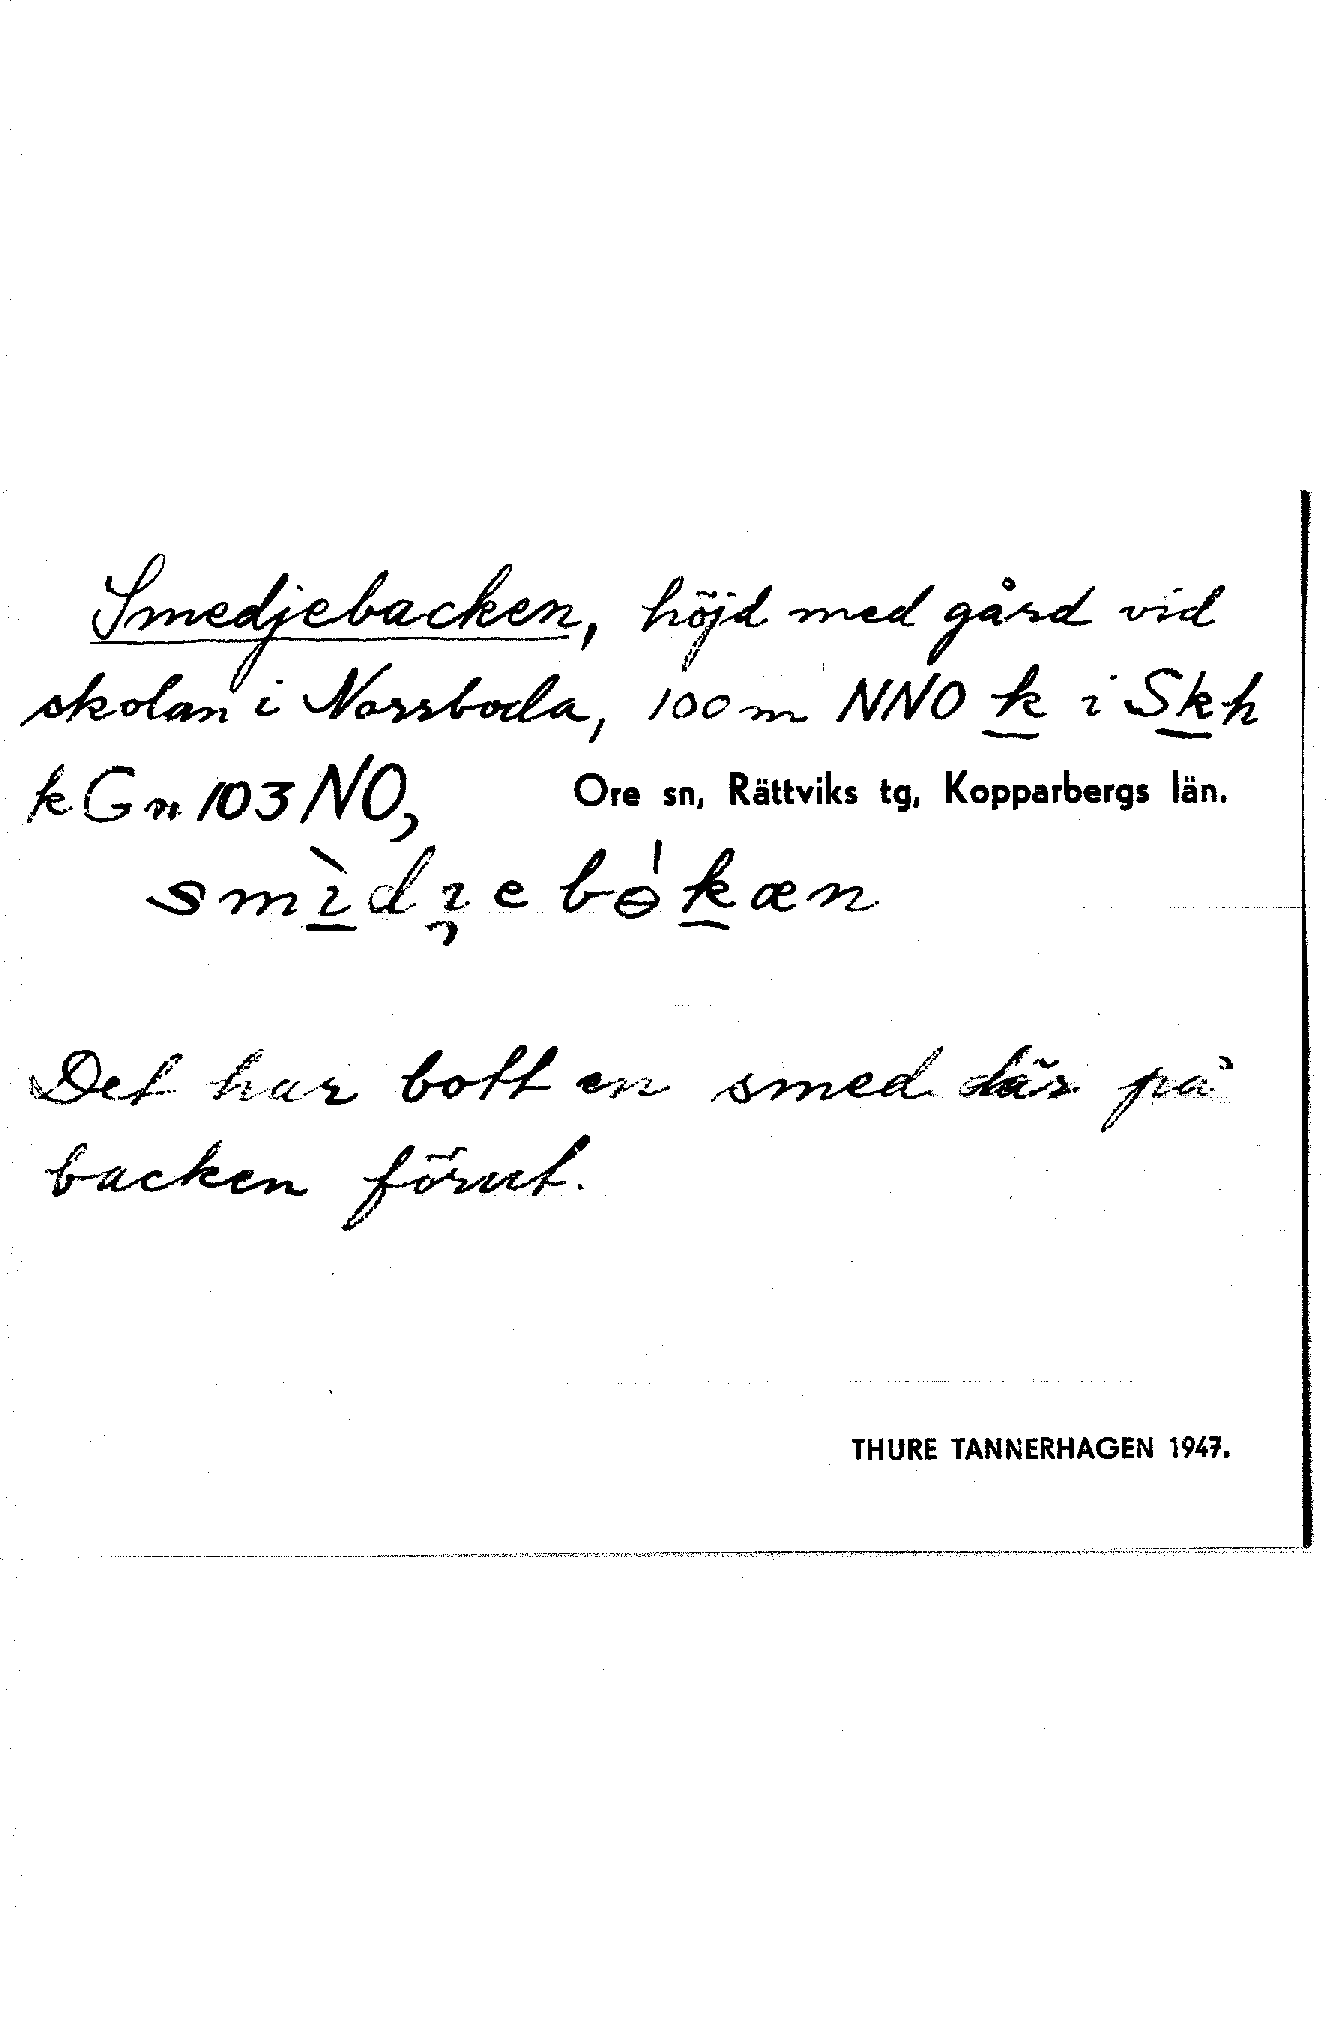 Smedjebacken, höjd med gård vid
skolan i Norrboda, 100 m NNO k i Skh
k Gn 103 NO,
Ore sn, Rättviks tg, Kopparbergs län.
smìdi̯ebɵ́kæn
Det har bott en smed där på
backen förut.
THURE TANNERHAGEN 1947.